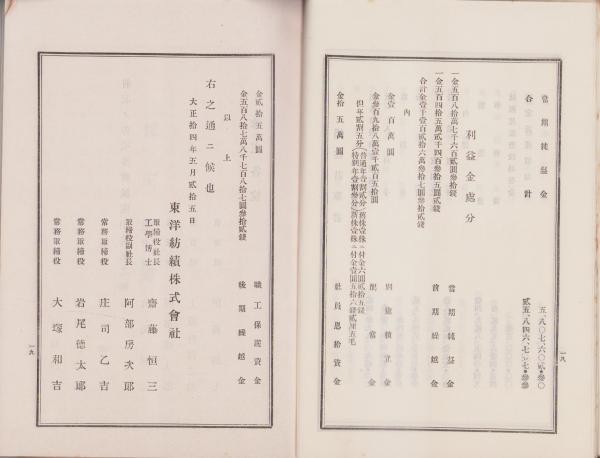 當期純益金 五、八〇七、六〇貳・參〇
合計 貳五、八四六、七七七・參參
利益金處分
一金五百八拾萬七千六百貳圓參拾錢 當期純益金
一金五百四拾五萬貳千四百參拾五圓貳錢 前期繰越金
合計金壹千壹百貳拾六萬參拾七圓參拾貳錢
內
金壹百萬圓 別途積立金
金參百九拾八萬壹千貳百五拾圓 配當金
但年貳割五分
金拾五萬圓 社員恩給資金
一八
金貳拾五萬圓 職工保護資金
金五百八拾七萬八千七百八拾七圓參拾貳錢 後期繰越金
以上
右之通ニ候也
大正拾四年五月貳拾五日
東洋紡績株式會社
取締役社長 工學博士 齋藤恒三
取締役副社長 阿部房次郎
常務取締役 庄司乙吉
常務取締役 岩尾德太郎
常務取締役 大塚和吉
一九